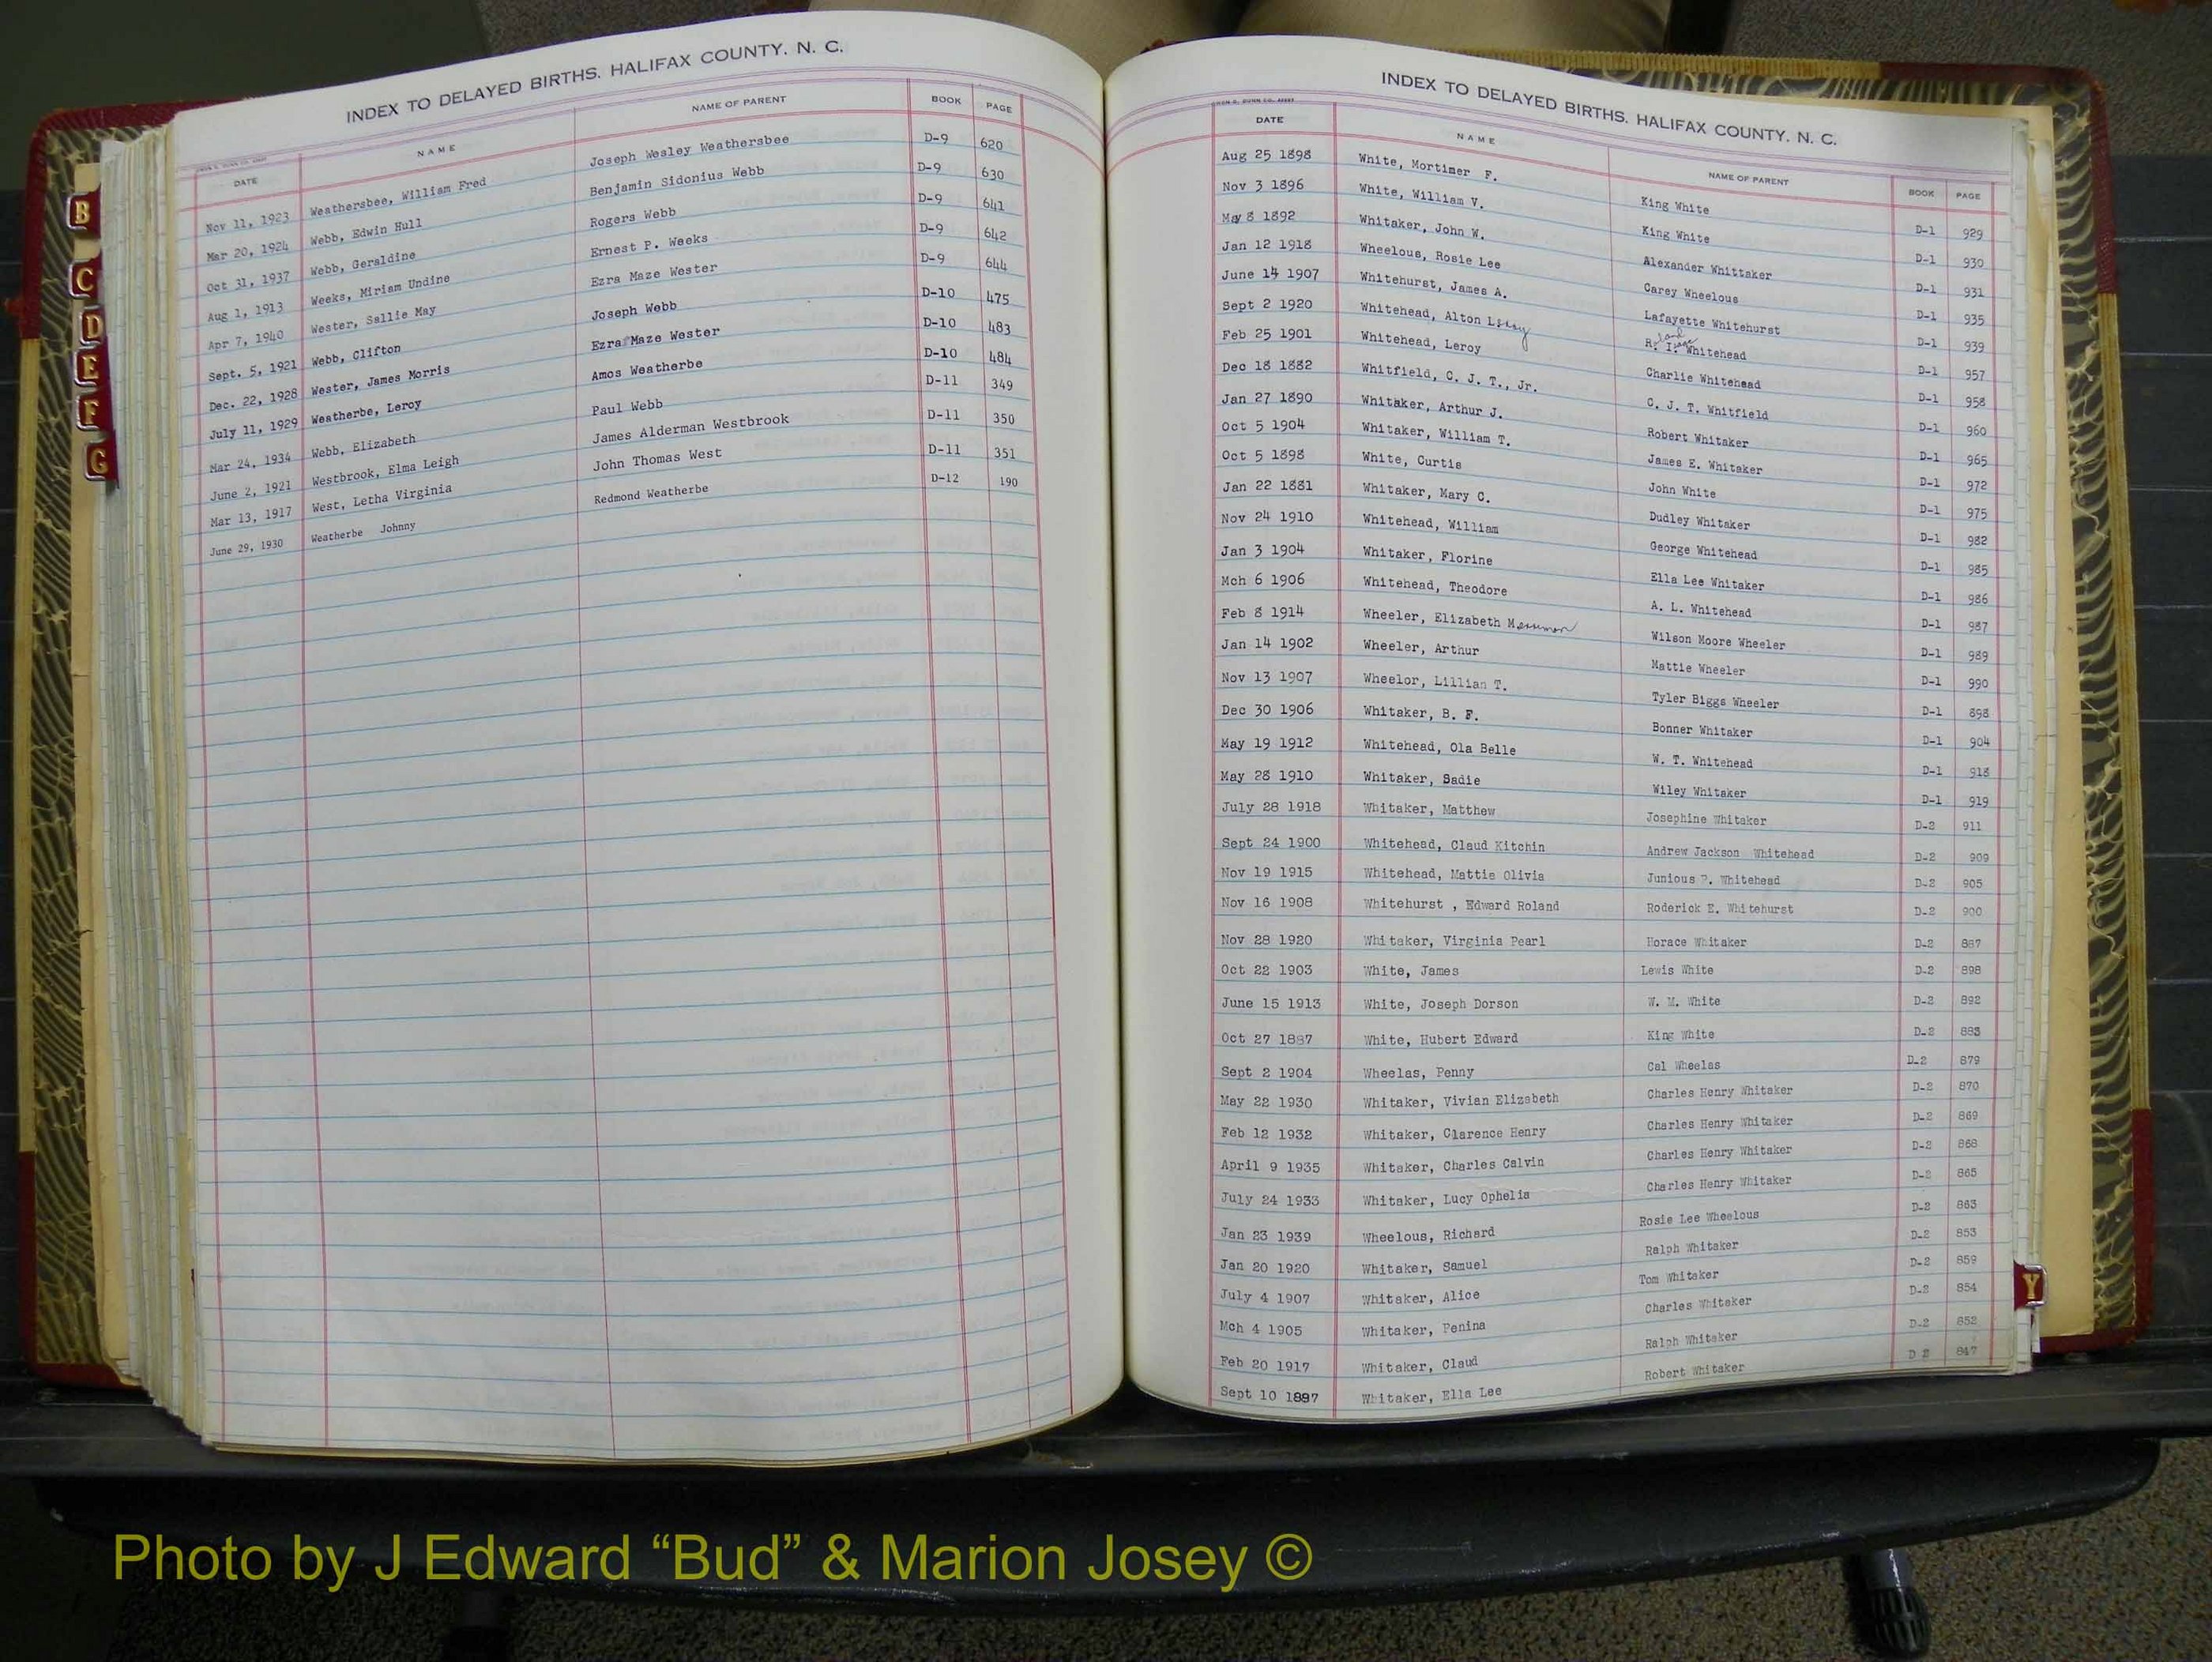 INDEX TO DELAYED BIRTHS. HALIFAX COUNTY. N. C.
DATE NAME NAME OF PARENT BOOK PAGE
Nov 11, 1923 Weathersbee, William Fred Joseph Wesley Weathersbee D-9 620
Mar 20, 1924 Webb, Edwin Hull Benjamin Sidonius Webb D-9 630
Oct 31, 1937 Webb, Geraldine Rogers Webb D-9 641
Aug 1, 1913 Weeks, Miriam Undine Ernest P. Weeks D-9 642
Apr 7, 1940 Wester, Sallie May Ezra Maze Wester D-9 644
Sept. 5, 1921 Webb, Clifton Joseph Webb D-10 475
Dec. 22, 1928 Wester, James Morris Ezra Maze Wester D-10 483
July 11, 1929 Weatherbe, Leroy Amos Weatherbe D-10 484
Mar 24, 1934 Webb, Elizabeth Paul Webb D-11 349
June 2, 1921 Westbrook, Elma Leigh James Alderman Westbrook D-11 350
Mar 13, 1917 West, Letha Virginia John Thomas West D-11 351
June 29, 1930 Weatherbe Johnny Redmond Weatherbe D-12 190
B
C
D
E
F
G
INDEX TO DELAYED BIRTHS. HALIFAX COUNTY. N. C.
DATE NAME NAME OF PARENT BOOK PAGE
Aug 25 1898 White, Mortimer F. King White D-1 929
Nov 3 1896 White, William V. King White D-1 930
May 8 1892 Whitaker, John W. Alexander Whittaker D-1 931
Jan 12 1918 Wheelous, Rosie Lee Carey Wheelous D-1 935
June 14 1907 Whitehurst, James A. Lafayette Whitehurst D-1 939
Sept 2 1920 Whitehead, Alton R. I. Whitehead D-1 957
Feb 25 1901 Whitehead, Leroy Charlie Whitehead D-1 958
Dec 18 1882 Whitfield, C. J. T., Jr. C. J. T. Whitfield D-1 960
Jan 27 1890 Whitaker, Arthur J. Robert Whitaker D-1 965
Oct 5 1904 Whitaker, William T. James E. Whitaker D-1 972
Oct 5 1898 White, Curtis John White D-1 975
Jan 22 1881 Whitaker, Mary C. Dudley Whitaker D-1 982
Nov 24 1910 Whitehead, William George Whitehead D-1 985
Jan 3 1904 Whitaker, Florine Ella Lee Whitaker D-1 986
Mch 6 1906 Whitehead, Theodore A. L. Whitehead D-1 987
Feb 8 1914 Wheeler, Elizabeth Wilson Moore Wheeler D-1 989
Jan 14 1902 Wheeler, Arthur Mattie Wheeler D-1 990
Nov 13 1907 Wheelor, Lillian T. Tyler Biggs Wheeler D-1 898
Dec 30 1906 Whitaker, B. F. Bonner Whitaker D-1 904
May 19 1912 Whitehead, Ola Belle W. T. Whitehead D-1 918
May 28 1910 Whitaker, Sadie Wiley Whitaker D-1 919
July 28 1918 Whitaker, Matthew Josephine Whitaker D-2 911
Sept 24 1900 Whitehead, Claud Kitchin Andrew Jackson Whitehead D-2 909
Nov 19 1915 Whitehead, Mattie Olivia Junious P. Whitehead D-2 905
Nov 16 1908 Whitehurst , Edward Roland Roderick E. Whitehurst D-2 900
Nov 28 1920 Whitaker, Virginia Pearl Horace Whitaker D-2 887
Oct 22 1903 White, James Lewis White D-2 898
June 15 1913 White, Joseph Dorson W. M. White D-2 892
Oct 27 1887 White, Hubert Edward King White D-2 883
Sept 2 1904 Wheelas, Penny Cal Wheelas D-2 879
May 22 1930 Whitaker, Vivian Elizabeth Charles Henry Whitaker D-2 870
Feb 12 1932 Whitaker, Clarence Henry Charles Henry Whitaker D-2 869
April 9 1935 Whitaker, Charles Calvin Charles Henry Whitaker D-2 868
July 24 1933 Whitaker, Lucy Ophelia Charles Henry Whitaker D-2 865
Jan 23 1939 Wheelous, Richard Rosie Lee Wheelous D-2 863
Jan 20 1920 Whitaker, Samuel Ralph Whitaker D-2 853
July 4 1907 Whitaker, Alice Tom Whitaker D-2 859
Mch 4 1905 Whitaker, Penina Charles Whitaker D-2 854
Feb 20 1917 Whitaker, Claud Ralph Whitaker D-2 852
Sept 10 1887 Whitaker, Ella Lee Robert Whitaker D 2 847
Y
Photo by J Edward “Bud” & Marion Josey ©